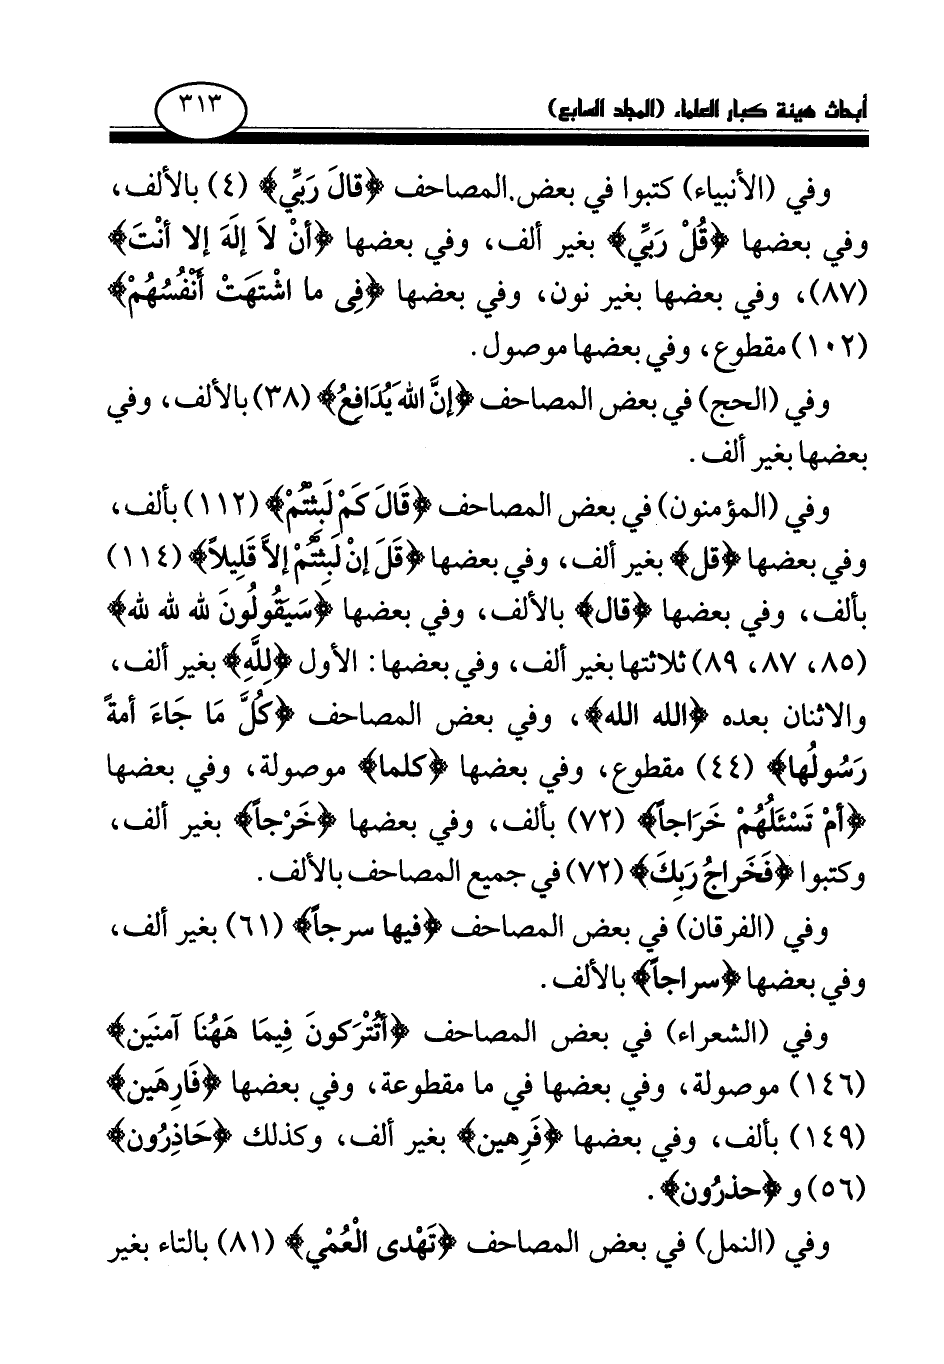 أبحاث هيئة كبار العلماء (المجلد السابع)
٣١٣
وفي (الأنبياء) كتبوا في بعض.المصاحف ﴿قالَ رَبِّي﴾ (٤) بالألف،
وفي بعضها ﴿قُلْ رَبِّي﴾ بغير ألف، وفي بعضها ﴿أنْ لاَ إلهَ إلا أنْتَ﴾
(٨٧)، وفي بعضها بغير نون، وفي بعضها ﴿فِى ما اشْتهَتْ أنْفُسُهُمْ﴾
(١٠٢) مقطوع، وفي بعضها موصول.
وفي (الحج) في بعض المصاحف ﴿إنَّ اللهَ يُدَافعُ﴾ (٣٨) بالألف، وفي
بعضها بغير ألف.
وفي (المؤمنون) في بعض المصاحف ﴿قَالَ كَمْ لَبِثْتُمْ﴾ (١١٢) بألف،
وفي بعضها ﴿قل﴾ بغير ألف، وفي بعضها ﴿قَلَ إنْ لَبِثْتُمْ إلاَّ قَلِيلاً﴾ (١١٤)
بألف، وفي بعضها ﴿قال﴾ بالألف، وفي بعضها ﴿سَيَقُولُونَ لله لله لله﴾
(٨٥، ٨٧، ٨٩) ثلاثتها بغير ألف، وفي بعضها: الأول ﴿لِلَّهِ﴾ بغير ألف،
والاثنان بعده ﴿الله الله﴾، وفي بعض المصاحف ﴿كُلَّ مَا جَاءَ أمةً
رَسُولُها﴾ (٤٤) مقطوع، وفي بعضها ﴿كلما﴾ موصولة، وفي بعضها
﴿أمْ تَسْئَلُهُمْ خَرَاجاً﴾ (٧٢) بألف، وفي بعضها ﴿خَرْجاً﴾ بغير ألف،
وكتبوا ﴿فَخَراجُ رَبِكَ﴾ (٧٢) في جميع المصاحف بالألف.
وفي (الفرقان) في بعض المصاحف ﴿فيها سرجاً﴾ (٦١) بغير ألف،
وفي بعضها ﴿سراجاً﴾ بالألف.
وفي (الشعراء) في بعض المصاحف ﴿أتُتْرَكونَ فِيمَا هَهُنَا آمنَين﴾
(١٤٦) موصولة، وفي بعضها في ما مقطوعة، وفي بعضها ﴿فَارِهَين﴾
(١٤٩) بألف، وفي بعضها ﴿فَرِهين﴾ بغير ألف، وكذلك ﴿حَاذِرُون﴾
(٥٦) و ﴿حذرُون﴾.
وفي (النمل) في بعض المصاحف ﴿تَهْدى الْعُمْي﴾ (٨١) بالتاء بغير